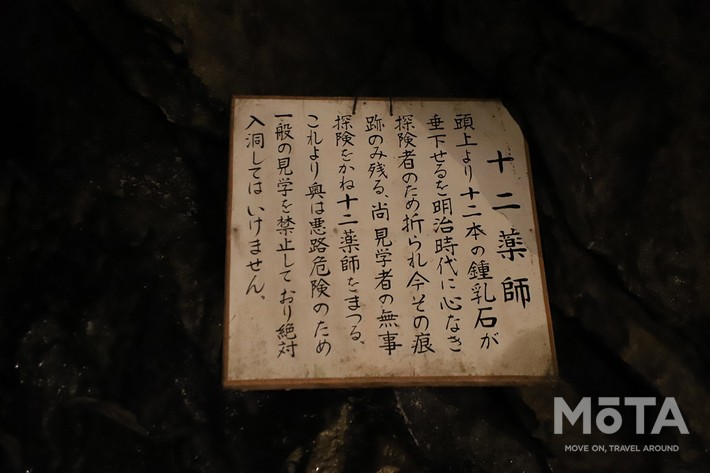 十二薬師
頭上より十二本の鍾乳石が
垂下せるを明治時代に心なき
探険者のため折られ今その痕
跡のみ残る、尚見学者の無事
探険をかね十二薬師をまつる、
これより奥は悪路危険のため
一般の見学を禁止しており絶対
入洞してはいけません、
MōTA
MOVE ON, TRAVEL AROUND